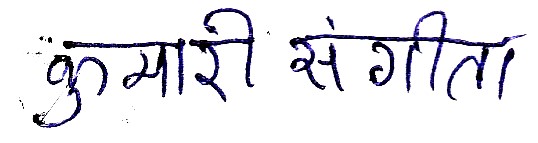 कुमारी संगीता